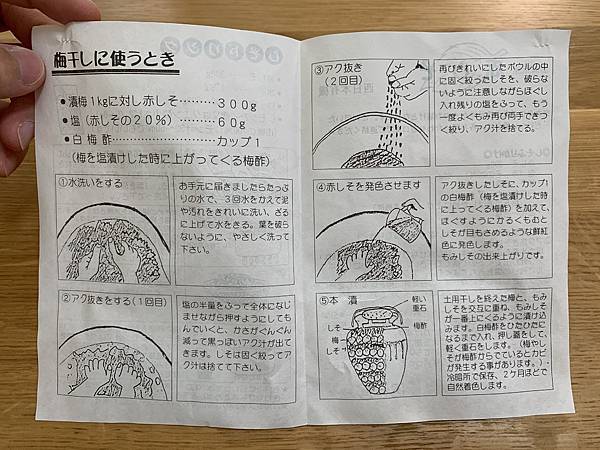 梅干しに使うとき
●漬梅1kgに対し赤しそ………300g
●塩(赤しその20%)…………60g
●白梅酢…………………カップ1
(梅を塩漬けした時に上がってくる梅酢)
①水洗いをする
お手元に届きましたらたっぷ
りの水で、3回水をかえて泥
や汚れをきれいに洗い、ざる
に上げて水をきる。葉を破ら
ないように、やさしく洗って
下さい。
②アク抜きをする(1回目)
塩の半量をふって全体になじ
ませながら押すようにしても
んでいくと、かさがぐんぐん
減って黒っぽいアク汁が出て
きます。しそは固く絞ってア
ク汁は捨てて下さい。
③アク抜き
(2回目)
再びきれいにしたボウルの中
に固く絞ったしそを、破らな
いように注意しながらほぐし
入れ残りの塩をふって、もう
一度よくもみ再び両手できつ
く絞り、アク汁を捨てる。
④赤しそを発色させます
アク抜きしたしそに、カップ1
の白梅酢(梅を塩漬けした時
に上ってくる梅酢)を加えて、
ほぐすようにかるくもむと
しそが目もさめるような鮮紅
色に発色します。
もみしその出来上がりです。
⑤本 漬
軽い
重石
梅酢
しそ
梅
しそ
土用干しを終えた梅と、もみ
しそを交互に重ね、もみしそ
が一番上にくるように漬け込
みます。白梅酢をひたひたに
なるまで入れ、押し蓋をして、
軽く重石をします。(梅やし
そが梅酢からでているとカビ
が発生する事があります。)・
冷暗所で保存、2ケ月ほどで
自然着色します。